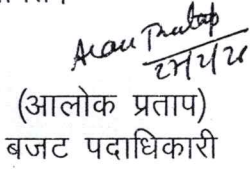 (आलोक प्रताप)
बजट पदाधिकारी